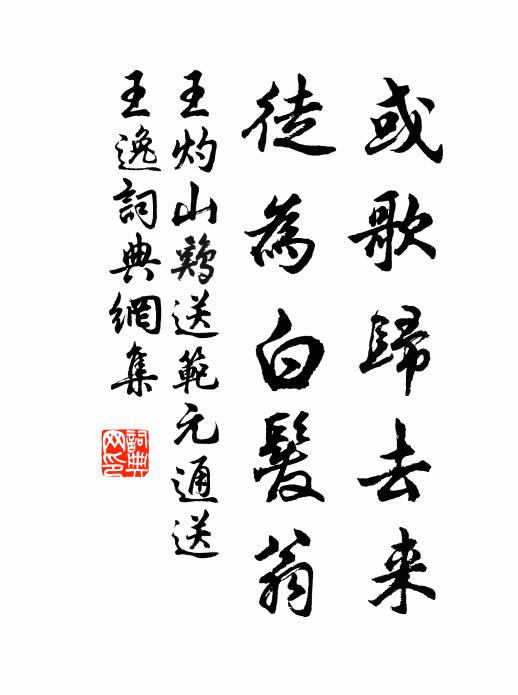 或歌歸去来
徒為白髮翁
王灼山鷄送範元通送
王逸詞典網集
詞典
网印